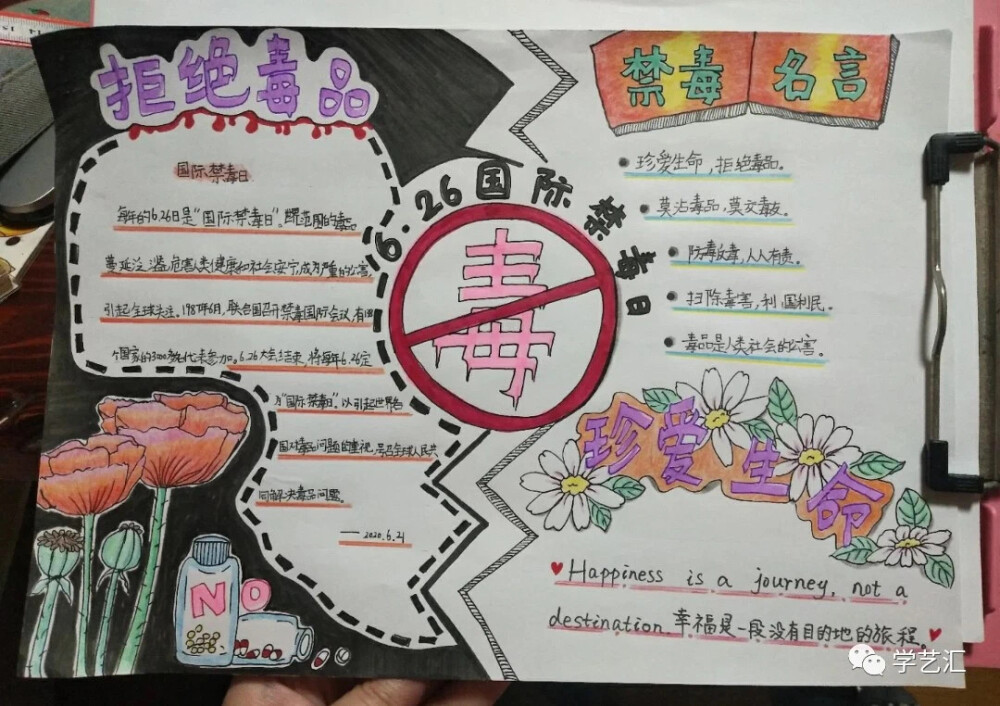 拒绝毒品
国际禁毒日
每年的6.26日是“国际禁毒日”。范围的毒品
蔓延泛滥,危害人类健康和社会安宁,成为严重的公害,
引起全球关注。1987年6月,联合国召开禁毒国际会议,有
个国家的3000多名代表参加。6.26大会结束,将每年6.26定
为“国际禁毒日”。以引起世界各
国对毒品问题的重视,号召全球人民共
同解决毒品问题。
——2020.6.21
6·26国际禁毒日
毒
NO
禁毒名言
珍爱生命,拒绝毒品。
莫沾毒品,莫交毒友。
防毒反毒,人人有责。
扫除毒害,利国利民。
毒品是人类社会的公害。
珍爱生命
Happiness is a journey, not a
destination.幸福是一段没有目的地的旅程。
学艺汇